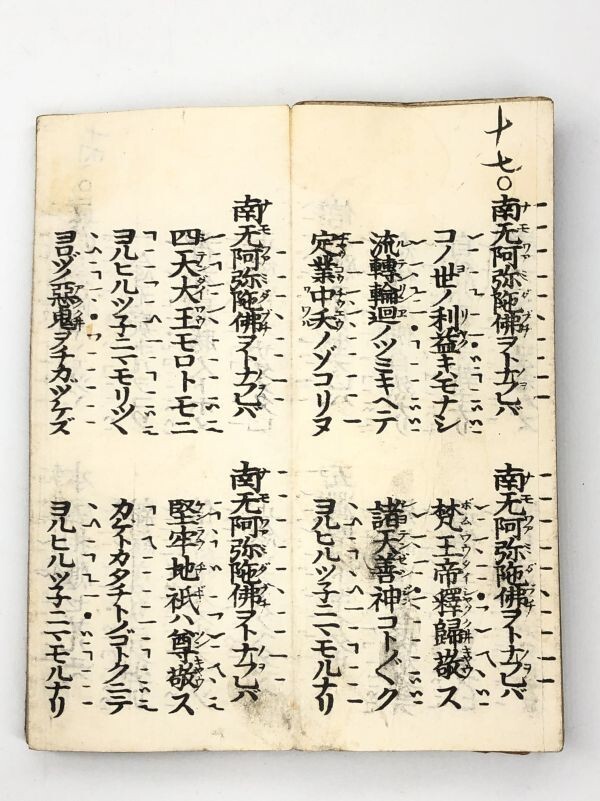 十七〇
南无阿弥陀佛ヲトナフレバ
コノ世ノ利益キハモナシ
流轉輪廻ノツミキヘテ
定業中夭ノゾコリヌ
南无阿弥陀佛ヲトナフレバ
梵王帝釋歸敬ス
諸天善神コト〲ク
ヨルヒルツ子ニマモルナリ
南无阿弥陀佛ヲトナフレバ
四天大王モロトモニ
ヨルヒルツ子ニマモリツヽ
ヨロヅノ惡鬼ヲチカヅケズ
南无阿弥陀佛ヲトナフレバ
堅牢地祇ハ尊敬ス
カゲトカタチトノゴトクニテ
ヨルヒルツ子ニマモルナリ